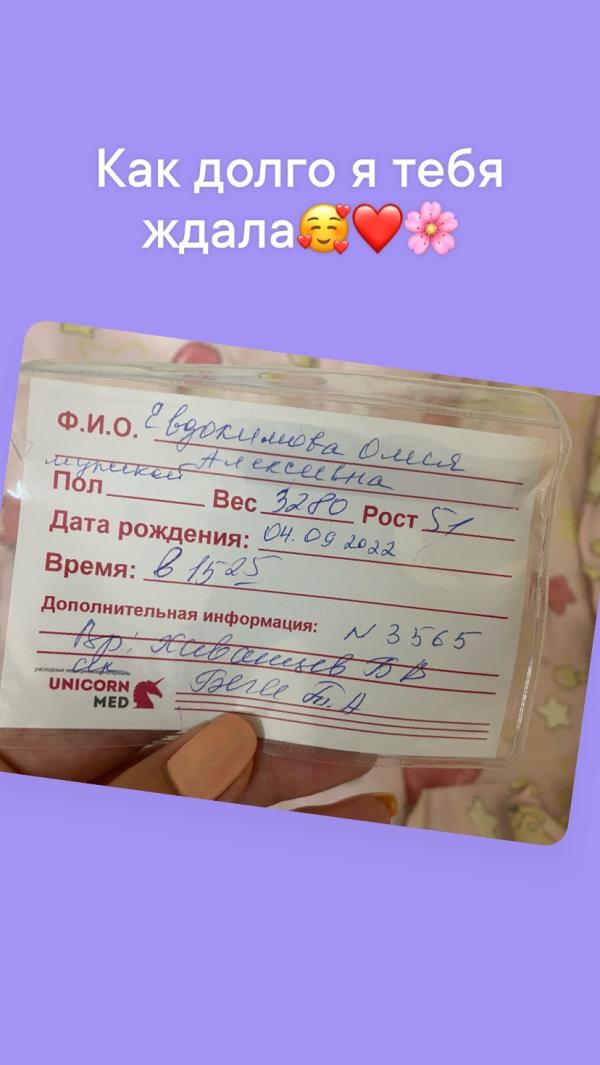 Как долго я тебя
ждала🥰❤️🌸
Ф.И.О. Евдокимова Олеся
Алексеевна
Пол мужской Вес 3280 Рост 51
Дата рождения: 04.09.2022
Время: в 1525
Дополнительная информация: N 3565
Вр:
UNICORN
MED